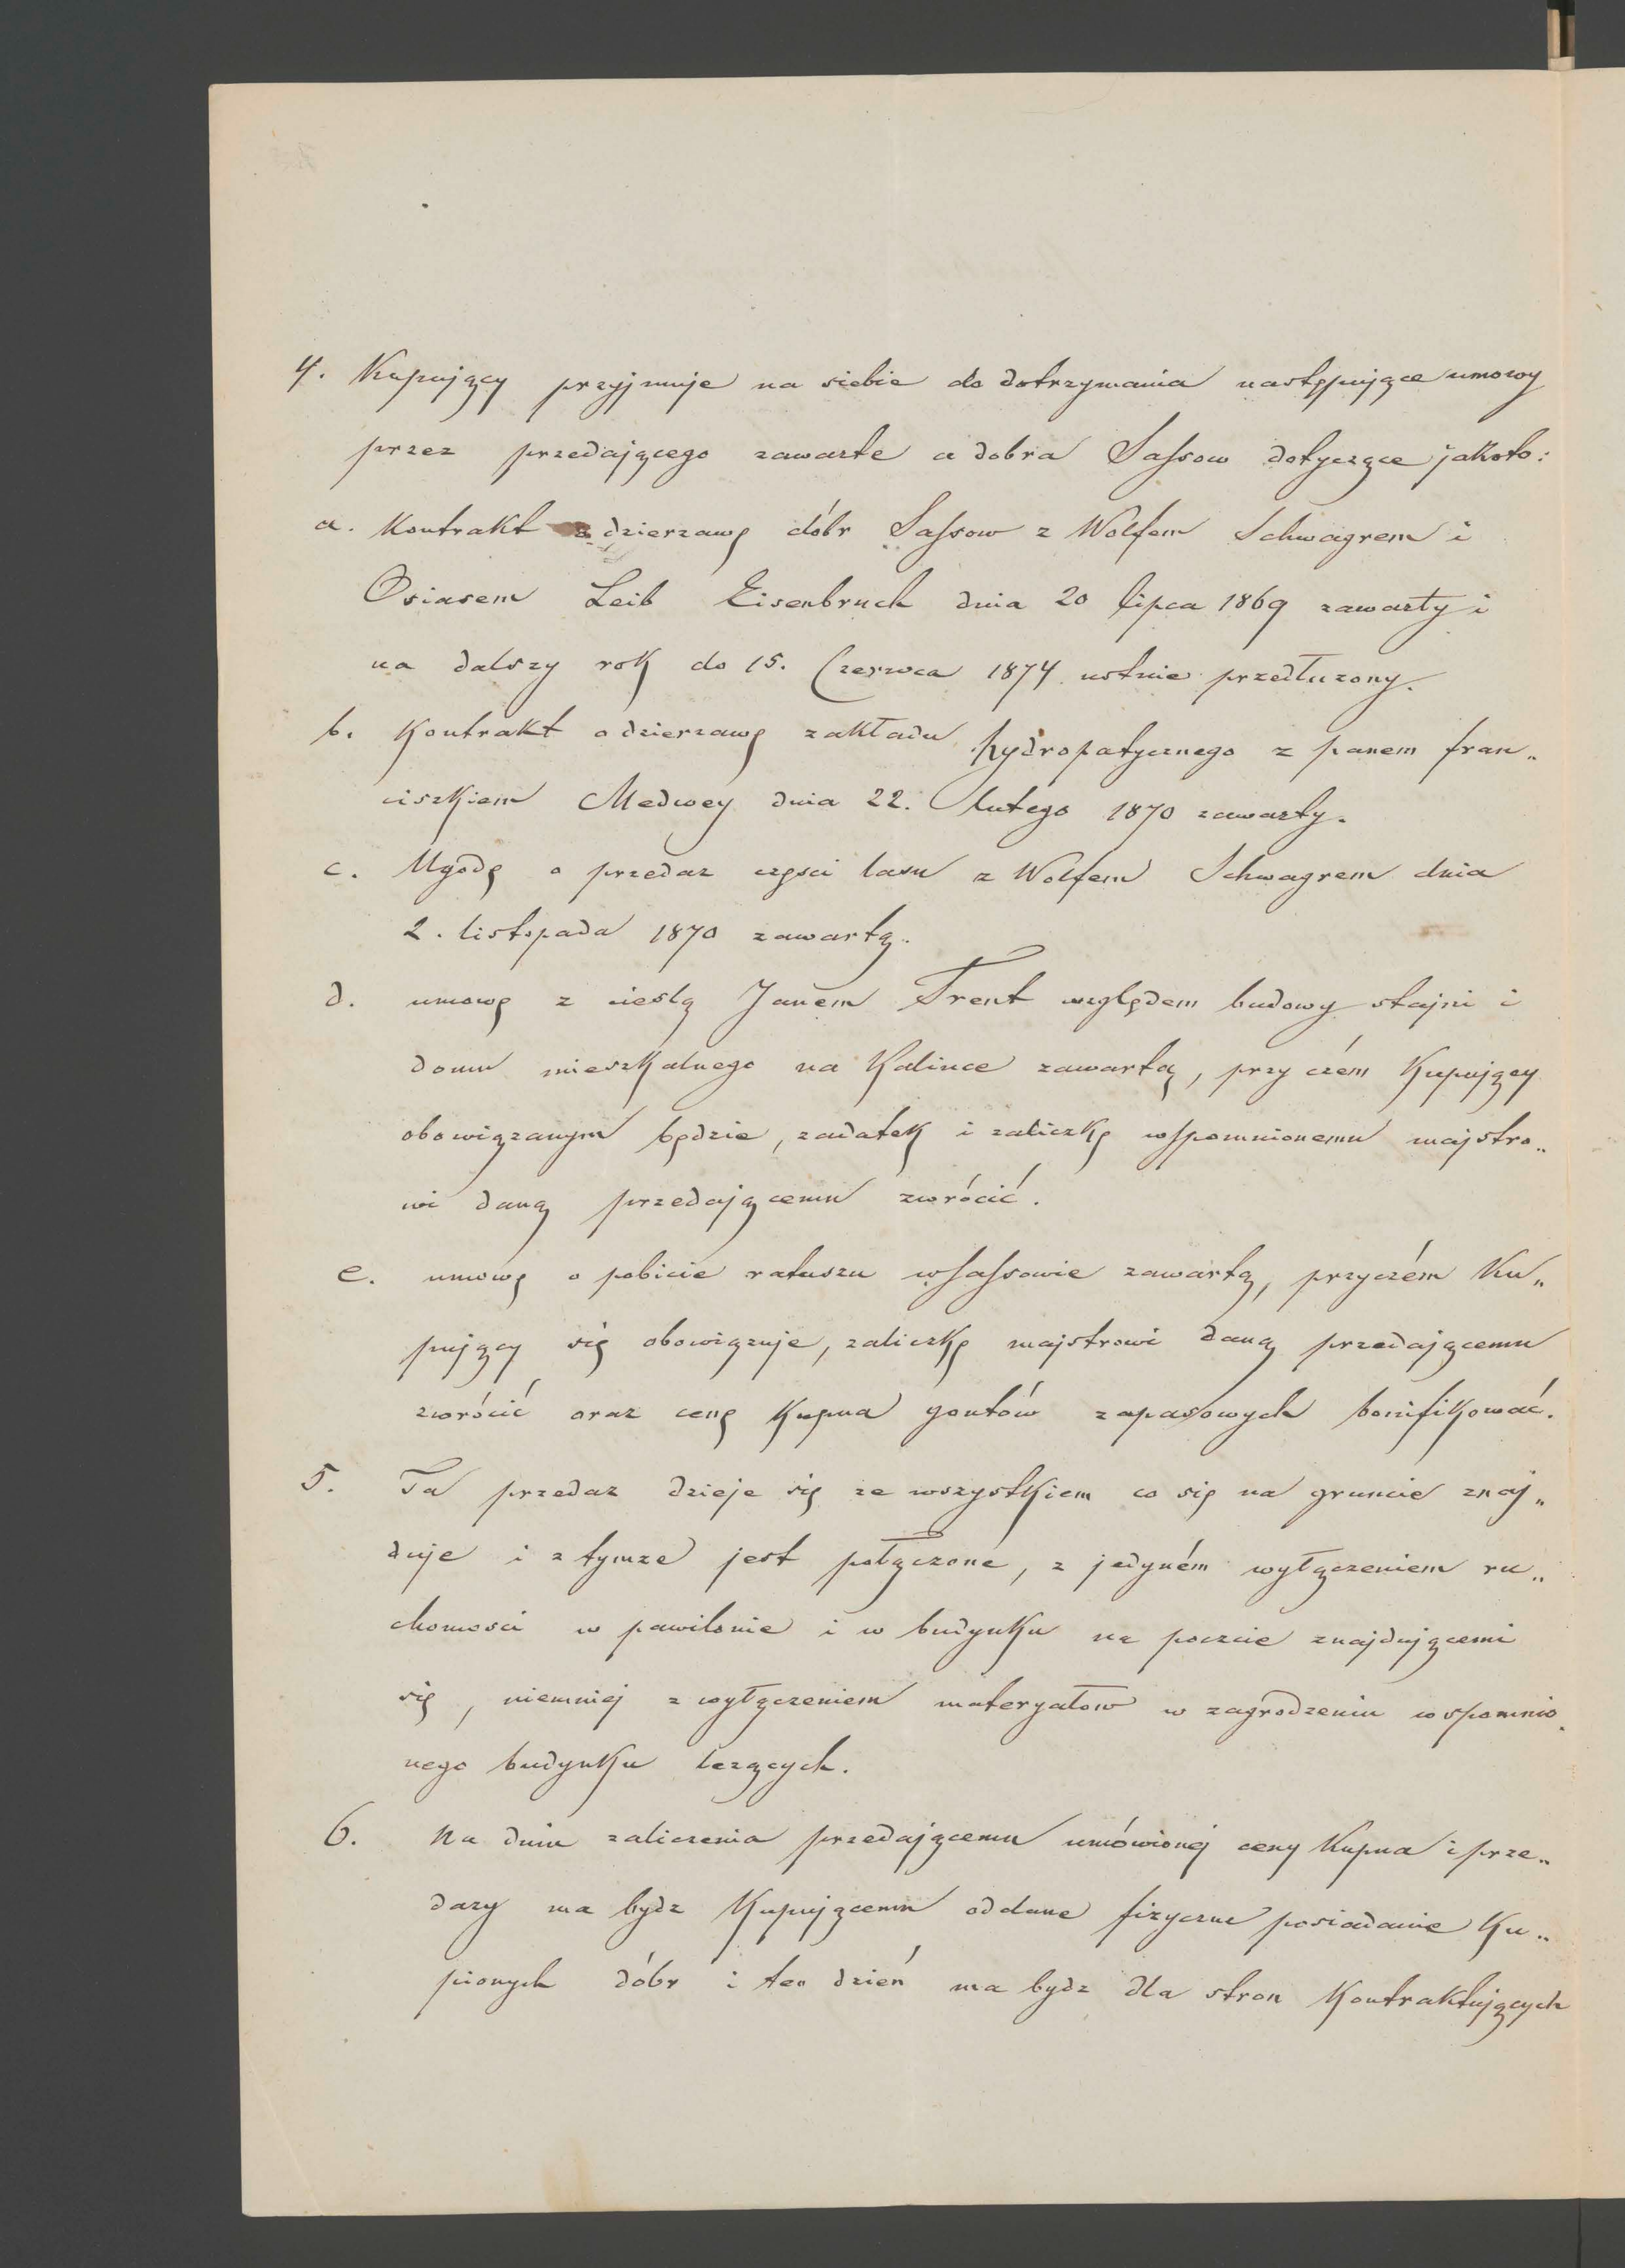 4. Kupujący przyjmuje na siebie do dotrzymania następujące umowy
przez przedającego zawarte a dobra Sassow dotyczące jakoto:
a. Kontrakt o dzierzawę dóbr Sassow z Wolfem Schwagrem i
Osiasem Leib Eisenbruch dnia 20 lipca 1869 zawarty i
na dalszy rok do 15. Czerwca 1874 ustnie przedłuzony.
b. Kontrakt o dzierzawę zakładu hydropatycznego z panem fran„
ciszkiem Medwey dnia 22. lutego 1870 zawarty.
c. Ugodę o przedaz częsci lasu z Wolfem Schwagrem dnia
2. listopada 1870 zawartą.
d. umowę z cieslą Janem Trent względem budowy stajni i
domu mieszkalnego na Kalince zawartą, przy czém Kupujący
obowiązanym będzie, zadatek i zaliczkę wspomnionemu majstro„
wi daną przedającemu zwrócić.
e. umowę o pobicie ratuszu w Sassowie zawartą, przyczém Ku„
pujący się obowiązuje, zaliczkę majstrowi daną przedającemu
zwrócić oraz cenę Kupna gontów zapasowych bonifikować.
5. Ta przedaz dzieje się ze wszystkiem co się na gruncie znaj„
duje i z tymze jest połączone, z jedyném wyłączeniem ru„
chomosci w pawilonie i w budynku na poczcie znajdującemi
się, niemniej z wyłączeniem materyałow w zagrodzeniu wspomnio„
nego budynku lezących.
6. Na dniu zaliczenia przedającemu umówionej ceny Kupna i prze„
dazy ma bydz Kupującemu oddane fizyczne posiadanie Ku„
pionych dóbr i ten dzień ma bydz dla stron Kontraktujących